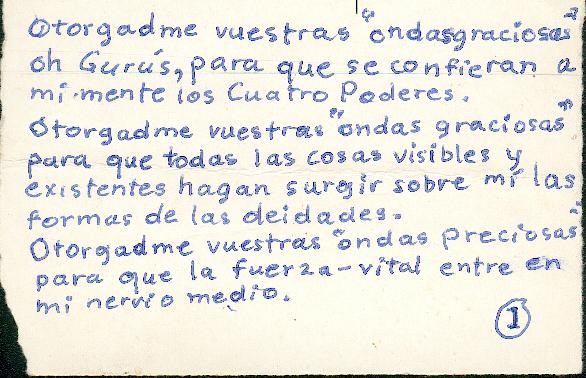 Otorgadme vuestras "ondasgraciosas"
oh Gurús, para que se confieran a
mi mente los Cuatro Poderes.
Otorgadme vuestras "ondas graciosas"
para que todas las cosas visibles y
existentes hagan surgir sobre mí las
formas de las deidades.
Otorgadme vuestras "ondas preciosas"
para que la fuerza-vital entre en
mi nervio medio.
1